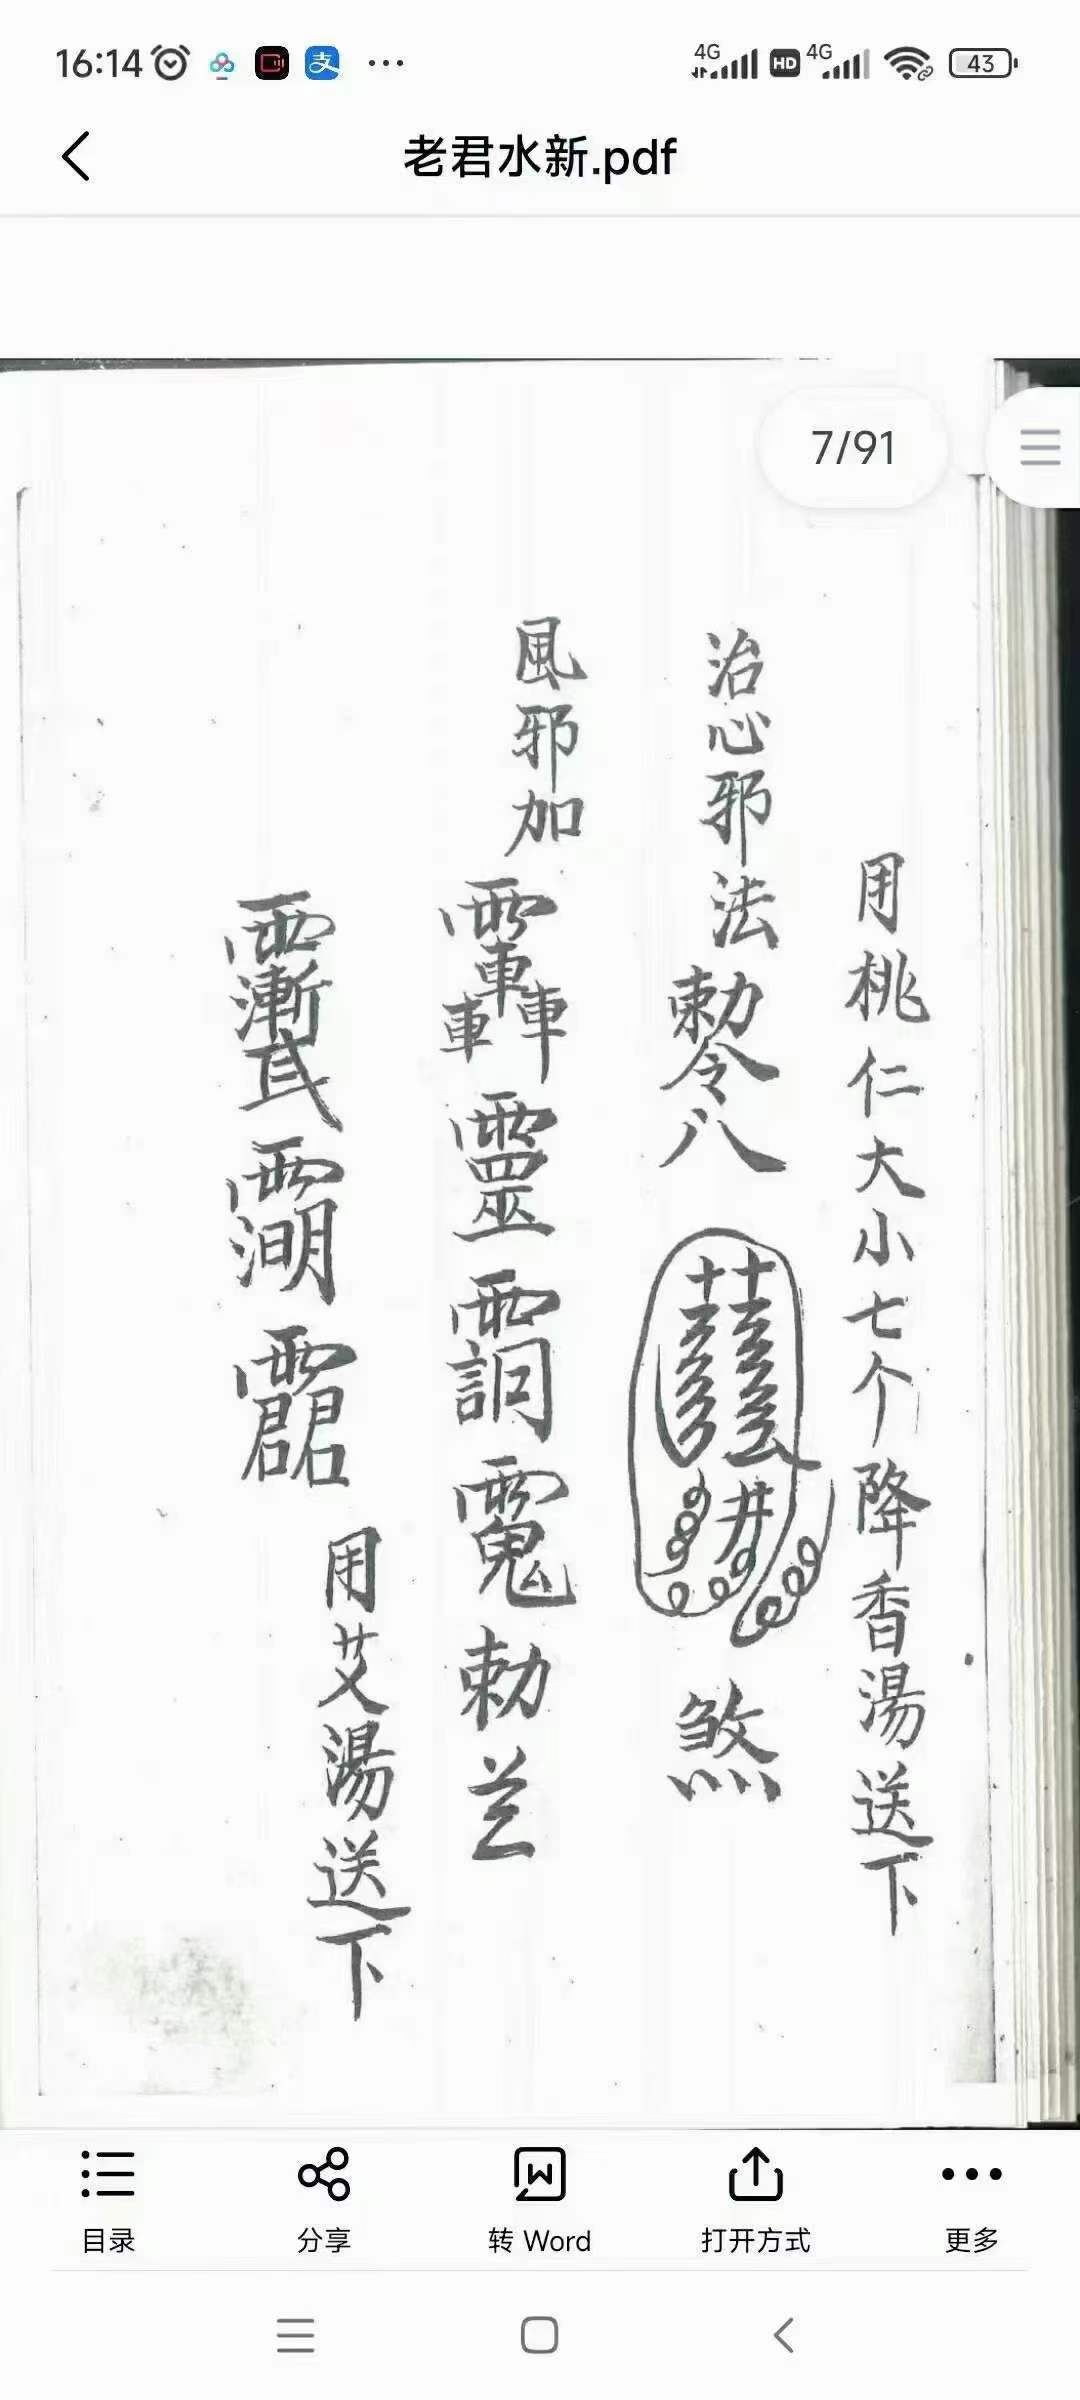 16:14
4G HD 4G 43
老君水新.pdf
7/91
用桃仁大小七个降香湯送下
治心邪法勅令八
煞
風邪加
勅
用艾湯送下
目录
分享
转 Word
打开方式
更多